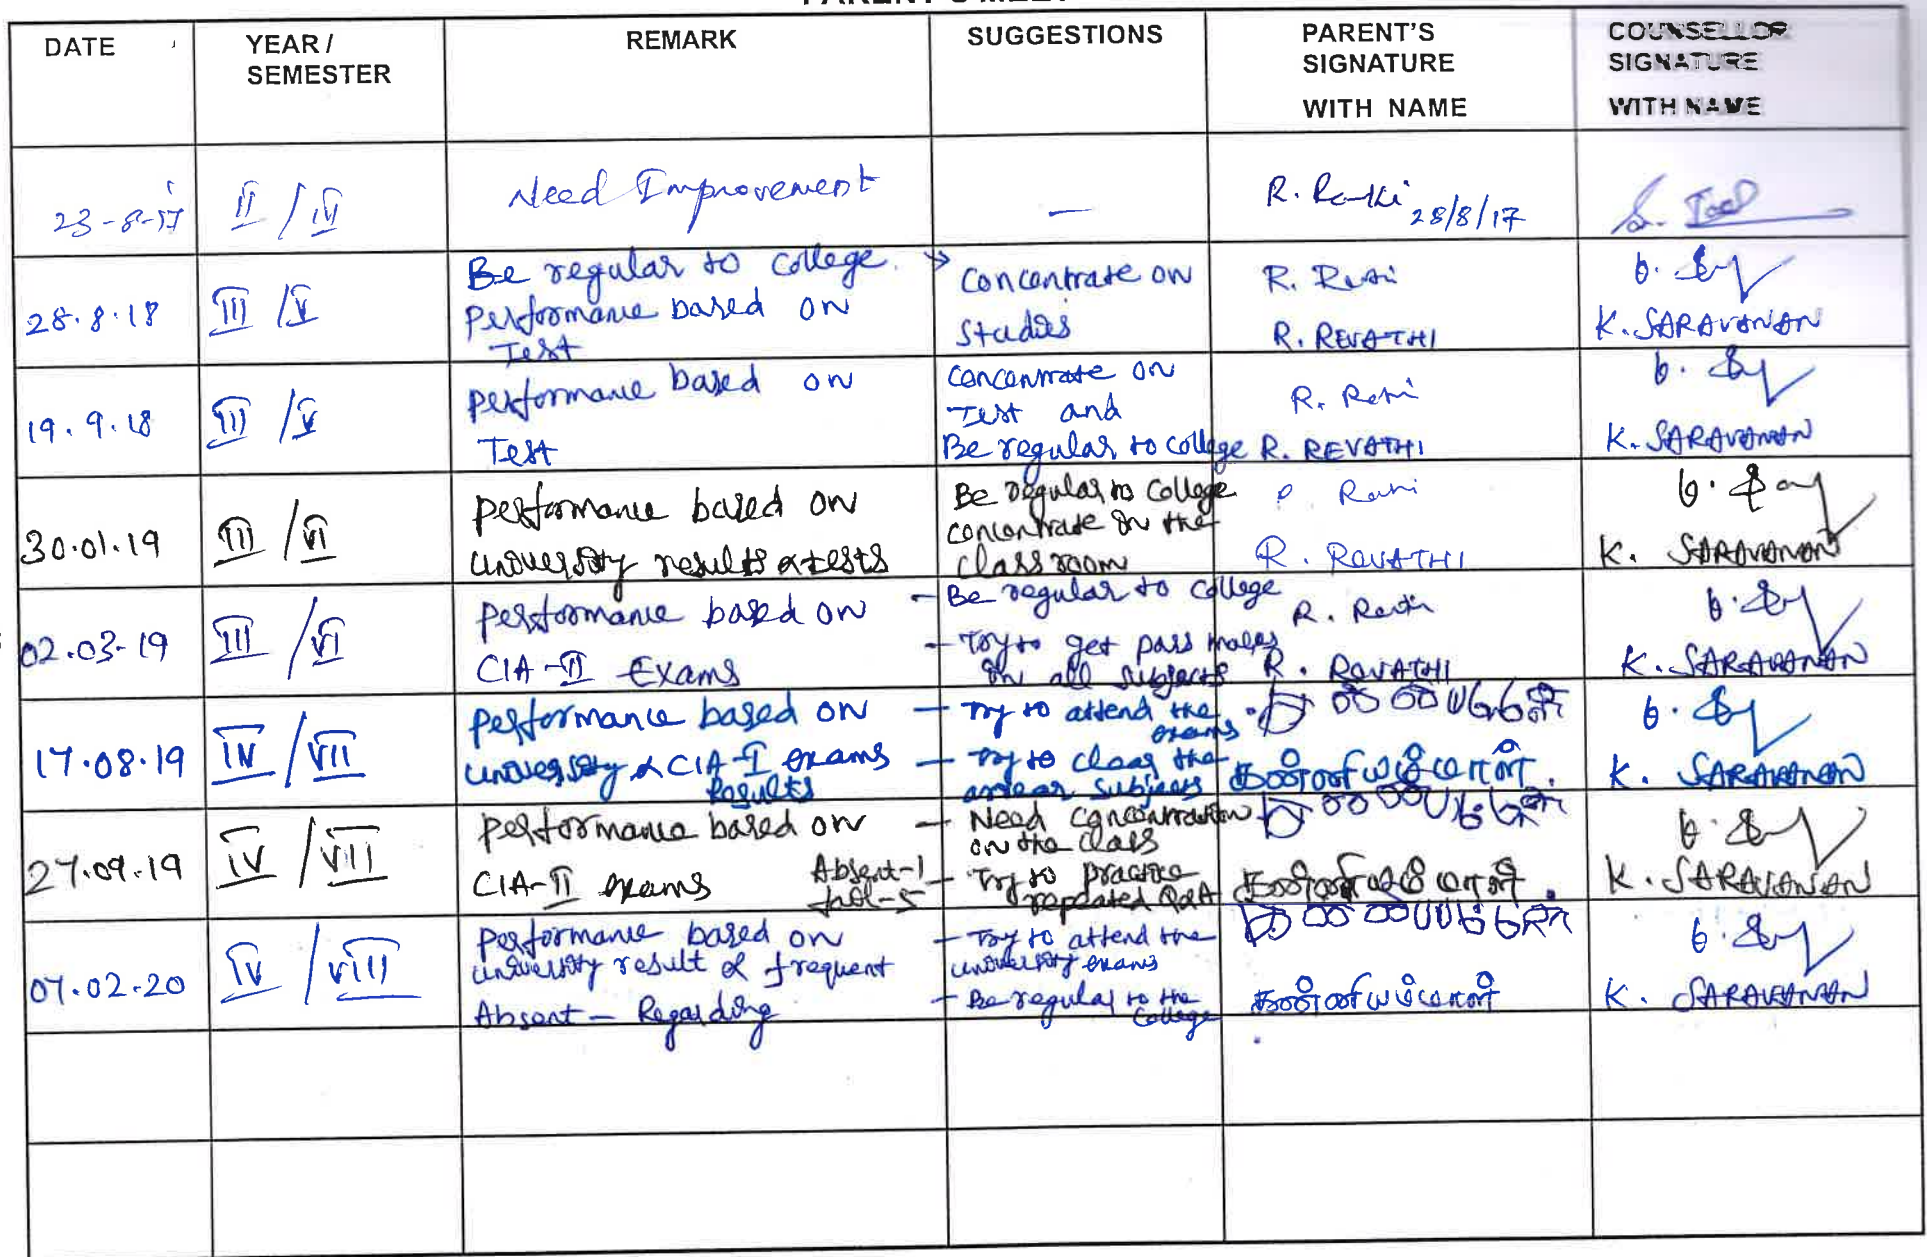 DATE
YEAR /
SEMESTER
REMARK
SUGGESTIONS
PARENT'S
SIGNATURE
WITH NAME
COUNSELLOR
SIGNATURE
WITH NAME
23-8-17
II / IV
Need Improvement
—
R.
28/8/17
28.8.18
III / V
Be regular to college.
performance based on
Test
Concentrate on
Studies
R. REVATHI
K. SARAVANAN
19.9.18
III / V
performance based on
Test
concentrate on
Test and
Be regular to college
R. REVATHI
K. SARAVANAN
30.01.19
III / VI
performance based on
university results & tests
Be regular to College
concentrate in the
classroom
R. REVATHI
K. SARAVANAN
02.03.19
III / VI
performance based on
CIA-II Exams
- Be regular to college
- Try to get pass marks
in all subjects
R. REVATHI
K. SARAVANAN
17.08.19
IV / VII
performance based on
university & CIA-I exams
Results
- Try to attend the
exams
- Try to clear the
arrear subjects
K. SARAVANAN
27.09.19
IV / VII
performance based on
CIA-II exams
Absent-1
fail-5
- Need concentration
on the class
- Try to practice
repeated Q&A
K. SARAVANAN
07.02.20
IV / VIII
performance based on
university result & frequent
Absent - Regarding
- Try to attend the
university exams
- Be regular to the
College
K. SARAVANAN